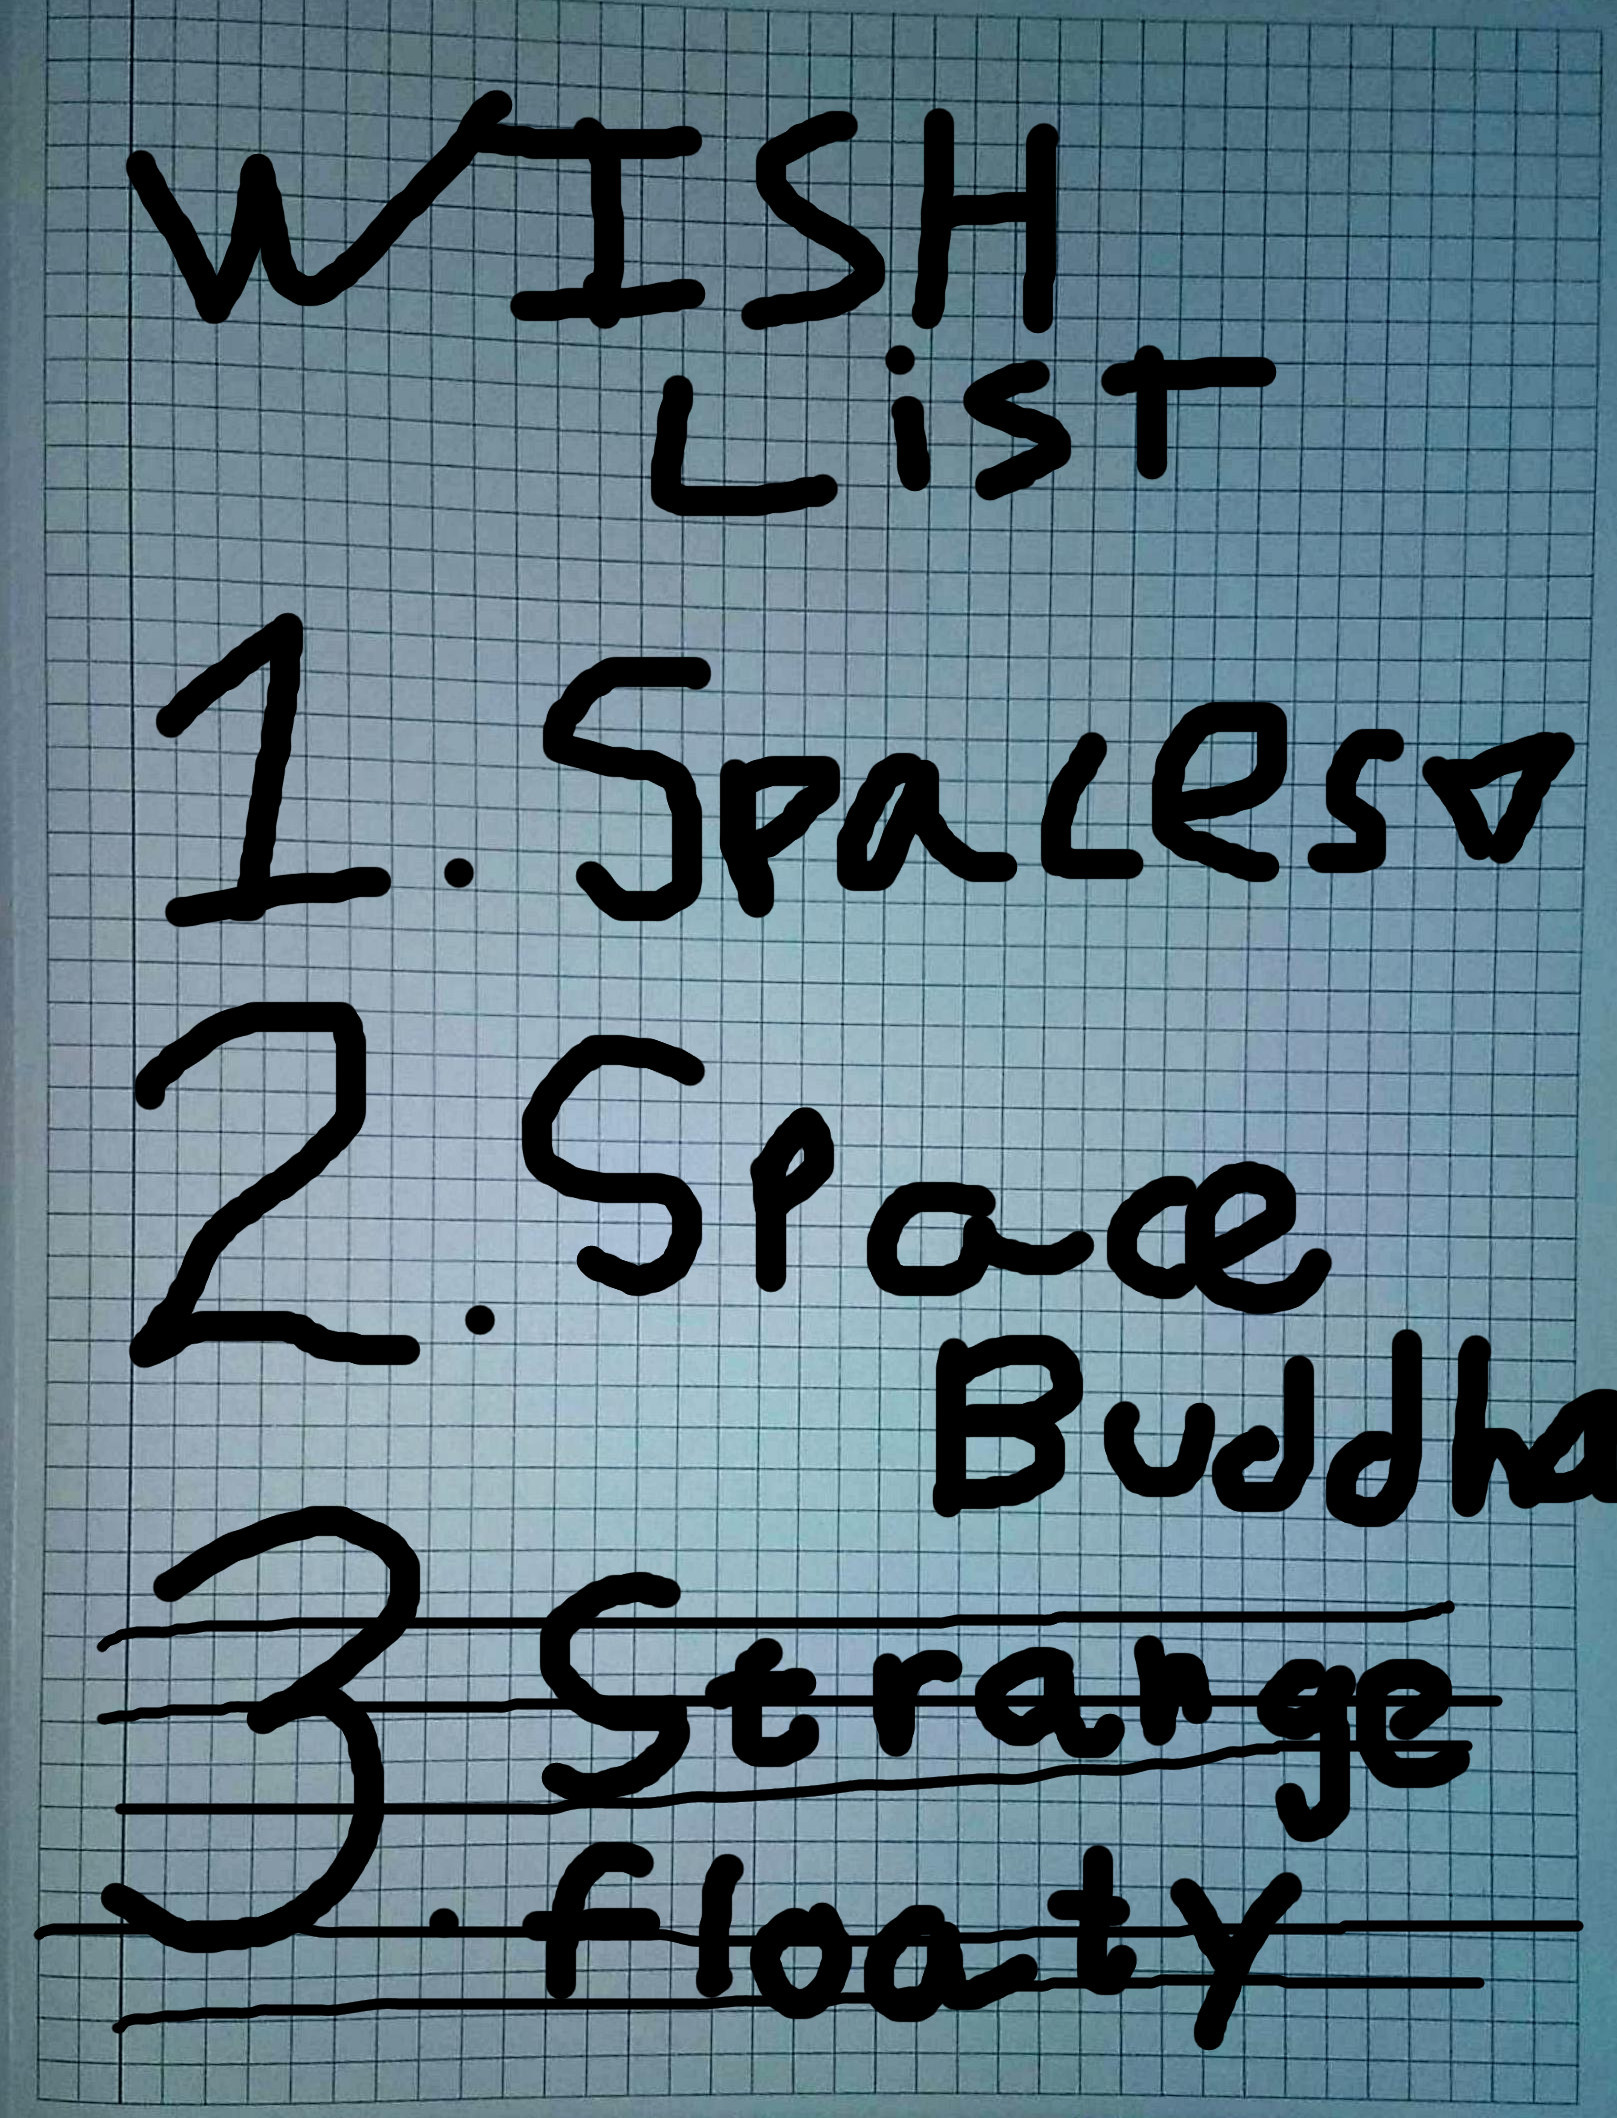 WISH
List
1. Spaces
2. Space
Buddha
3. Strange
floaty